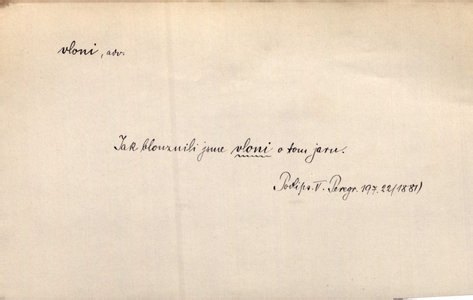 vloni, adv.
Jak blouznili jsme vloni o tom jaru.
Podlips. V. Peregr. 197, 22 (1881)